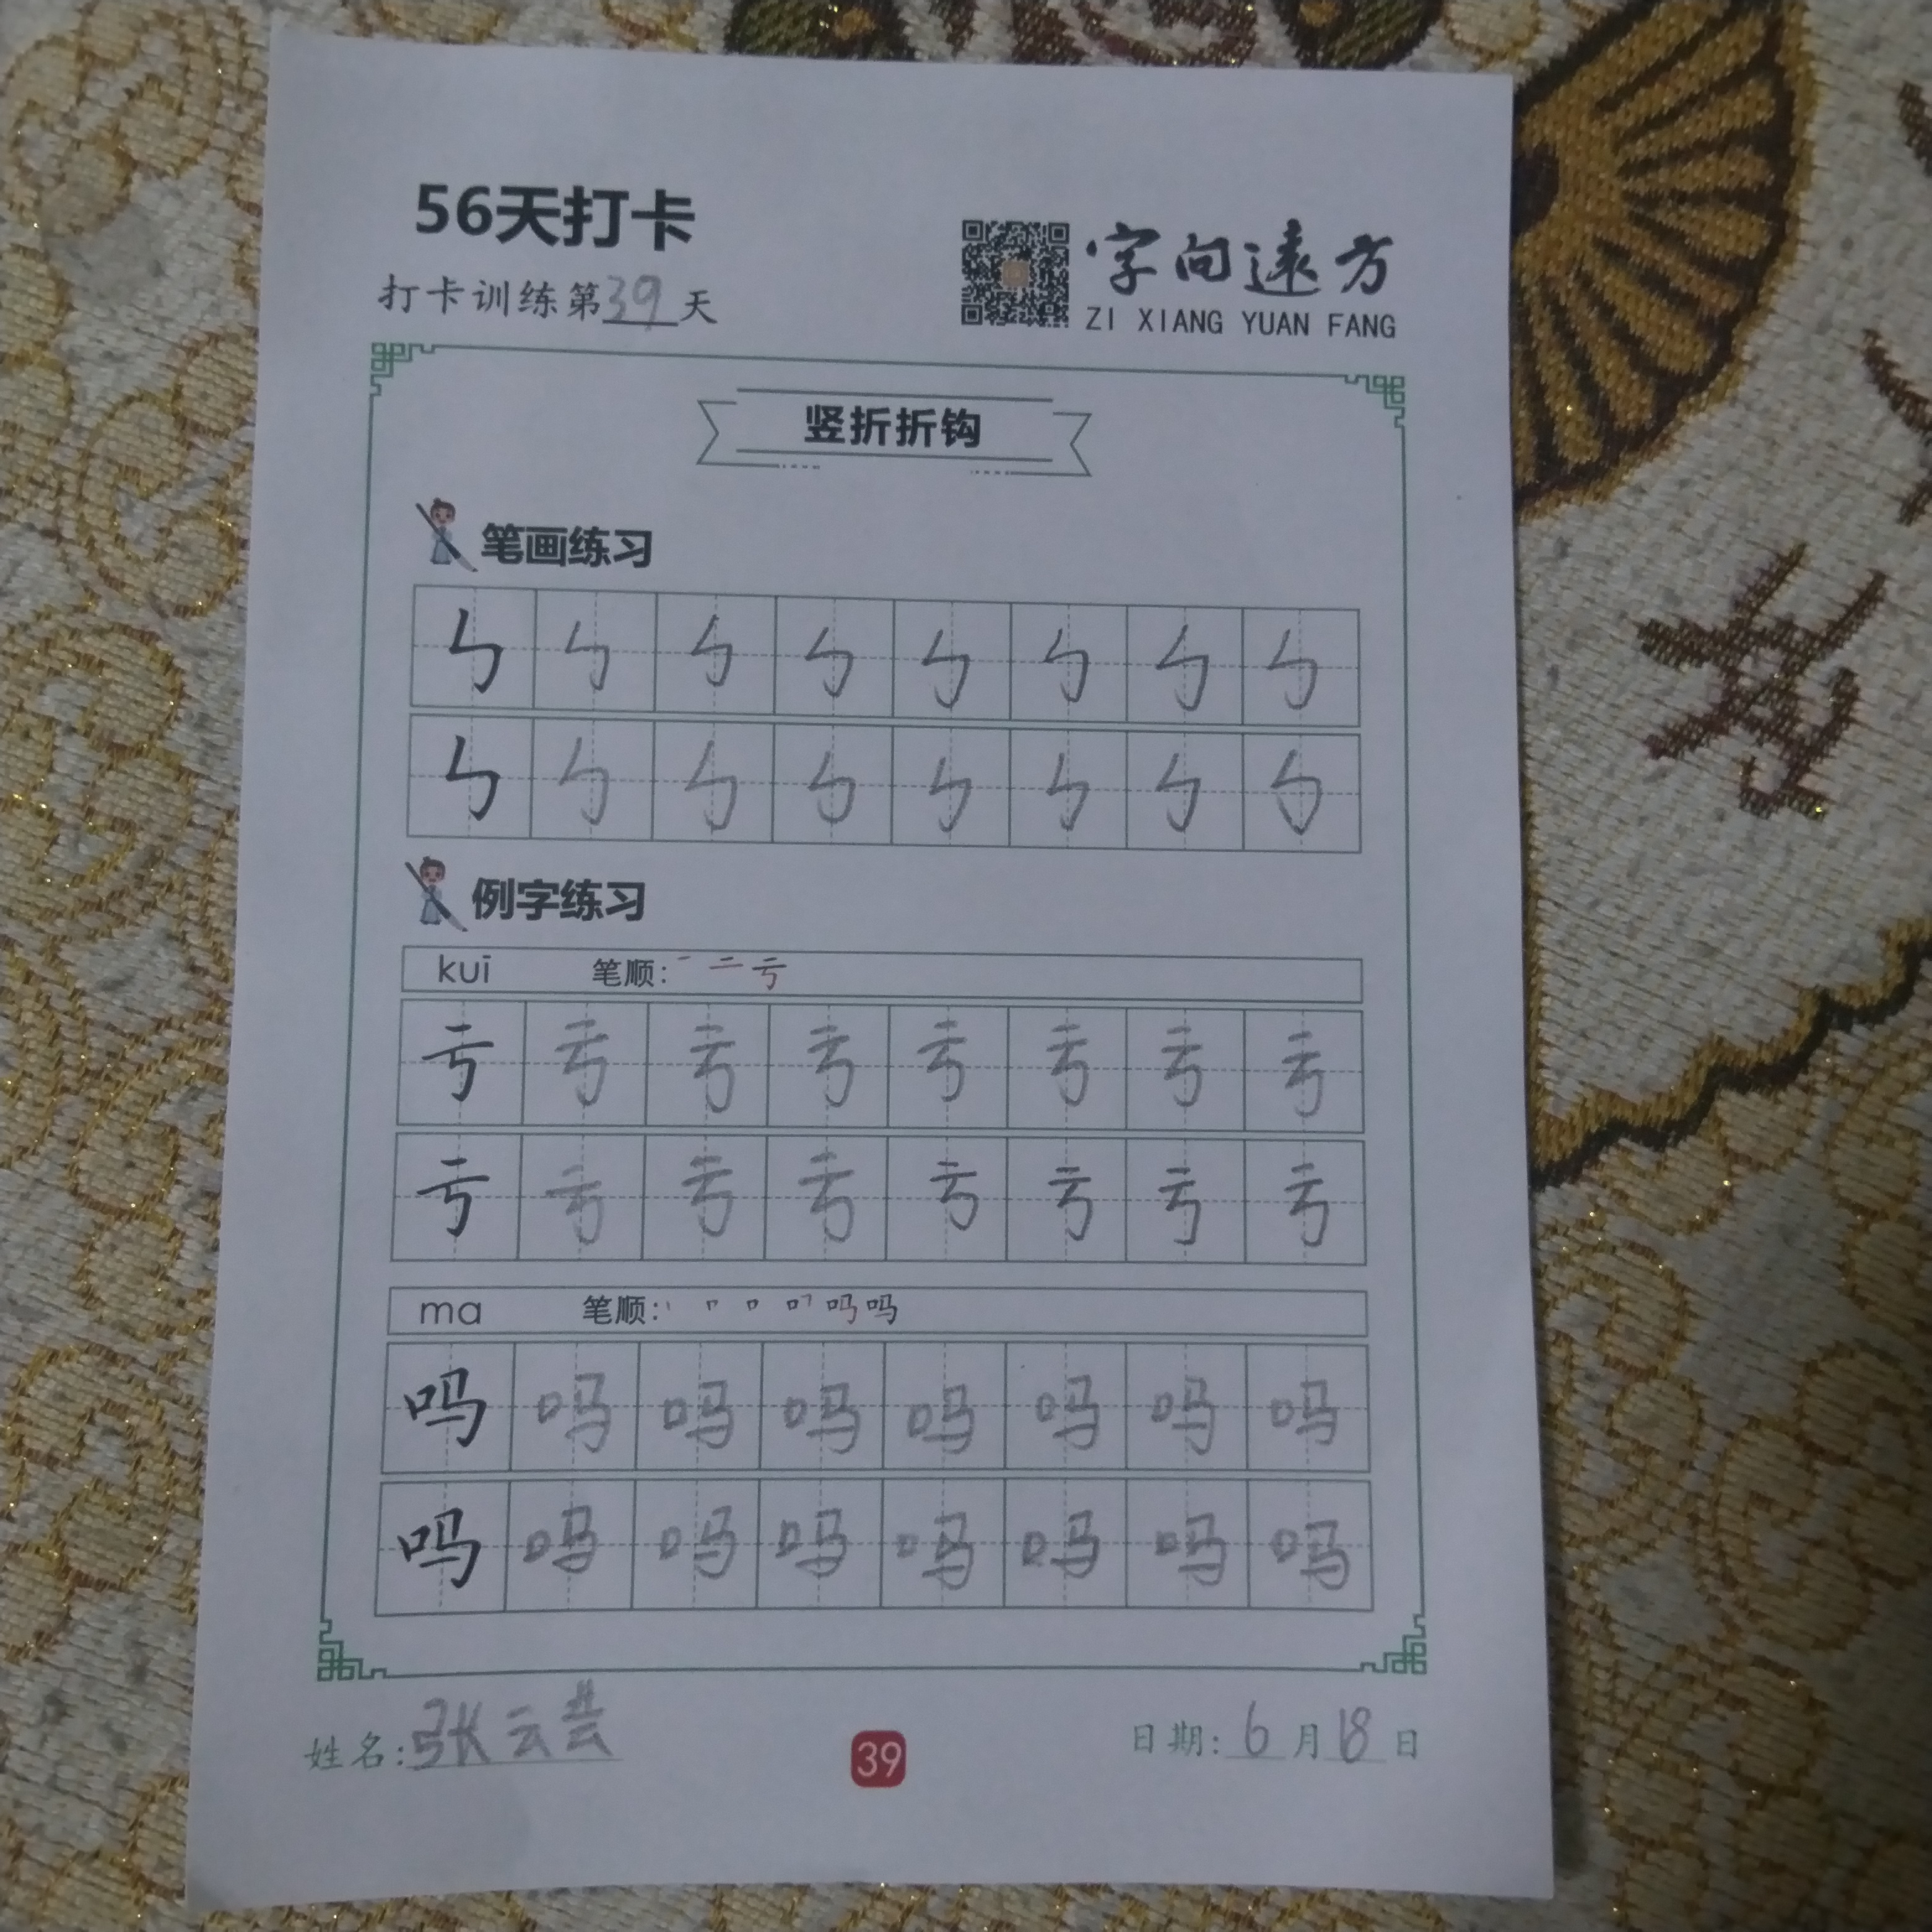 56天打卡
打卡训练第39天
字向远方
ZI XIANG YUAN FANG
竖折折钩
笔画练习
㇉ ㇉ ㇉ ㇉ ㇉ ㇉ ㇉ ㇉
㇉ ㇉ ㇉ ㇉ ㇉ ㇉ ㇉ ㇉
例字练习
kuī 笔顺: 一 二 亏
亏 亏 亏 亏 亏 亏 亏 亏
亏 亏 亏 亏 亏 亏 亏 亏
ma 笔顺: 丨 𠃍 口 吗 吗
吗 吗 吗 吗 吗 吗 吗 吗
吗 吗 吗 吗 吗 吗 吗 吗
姓名:张云芸
39
日期:6月18日